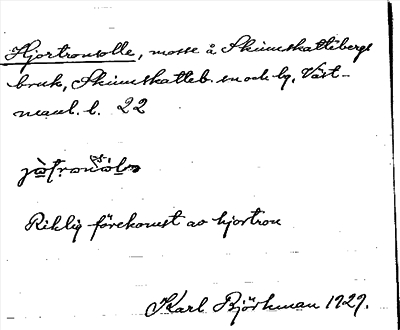 Hjortronsolle, mosse å Skinnskattebergs
bruk, Skinnskatteb. sn och hg, Väst-
manl. l. 22
Riklig förekomst av hjortron
Karl Björkman 1929.